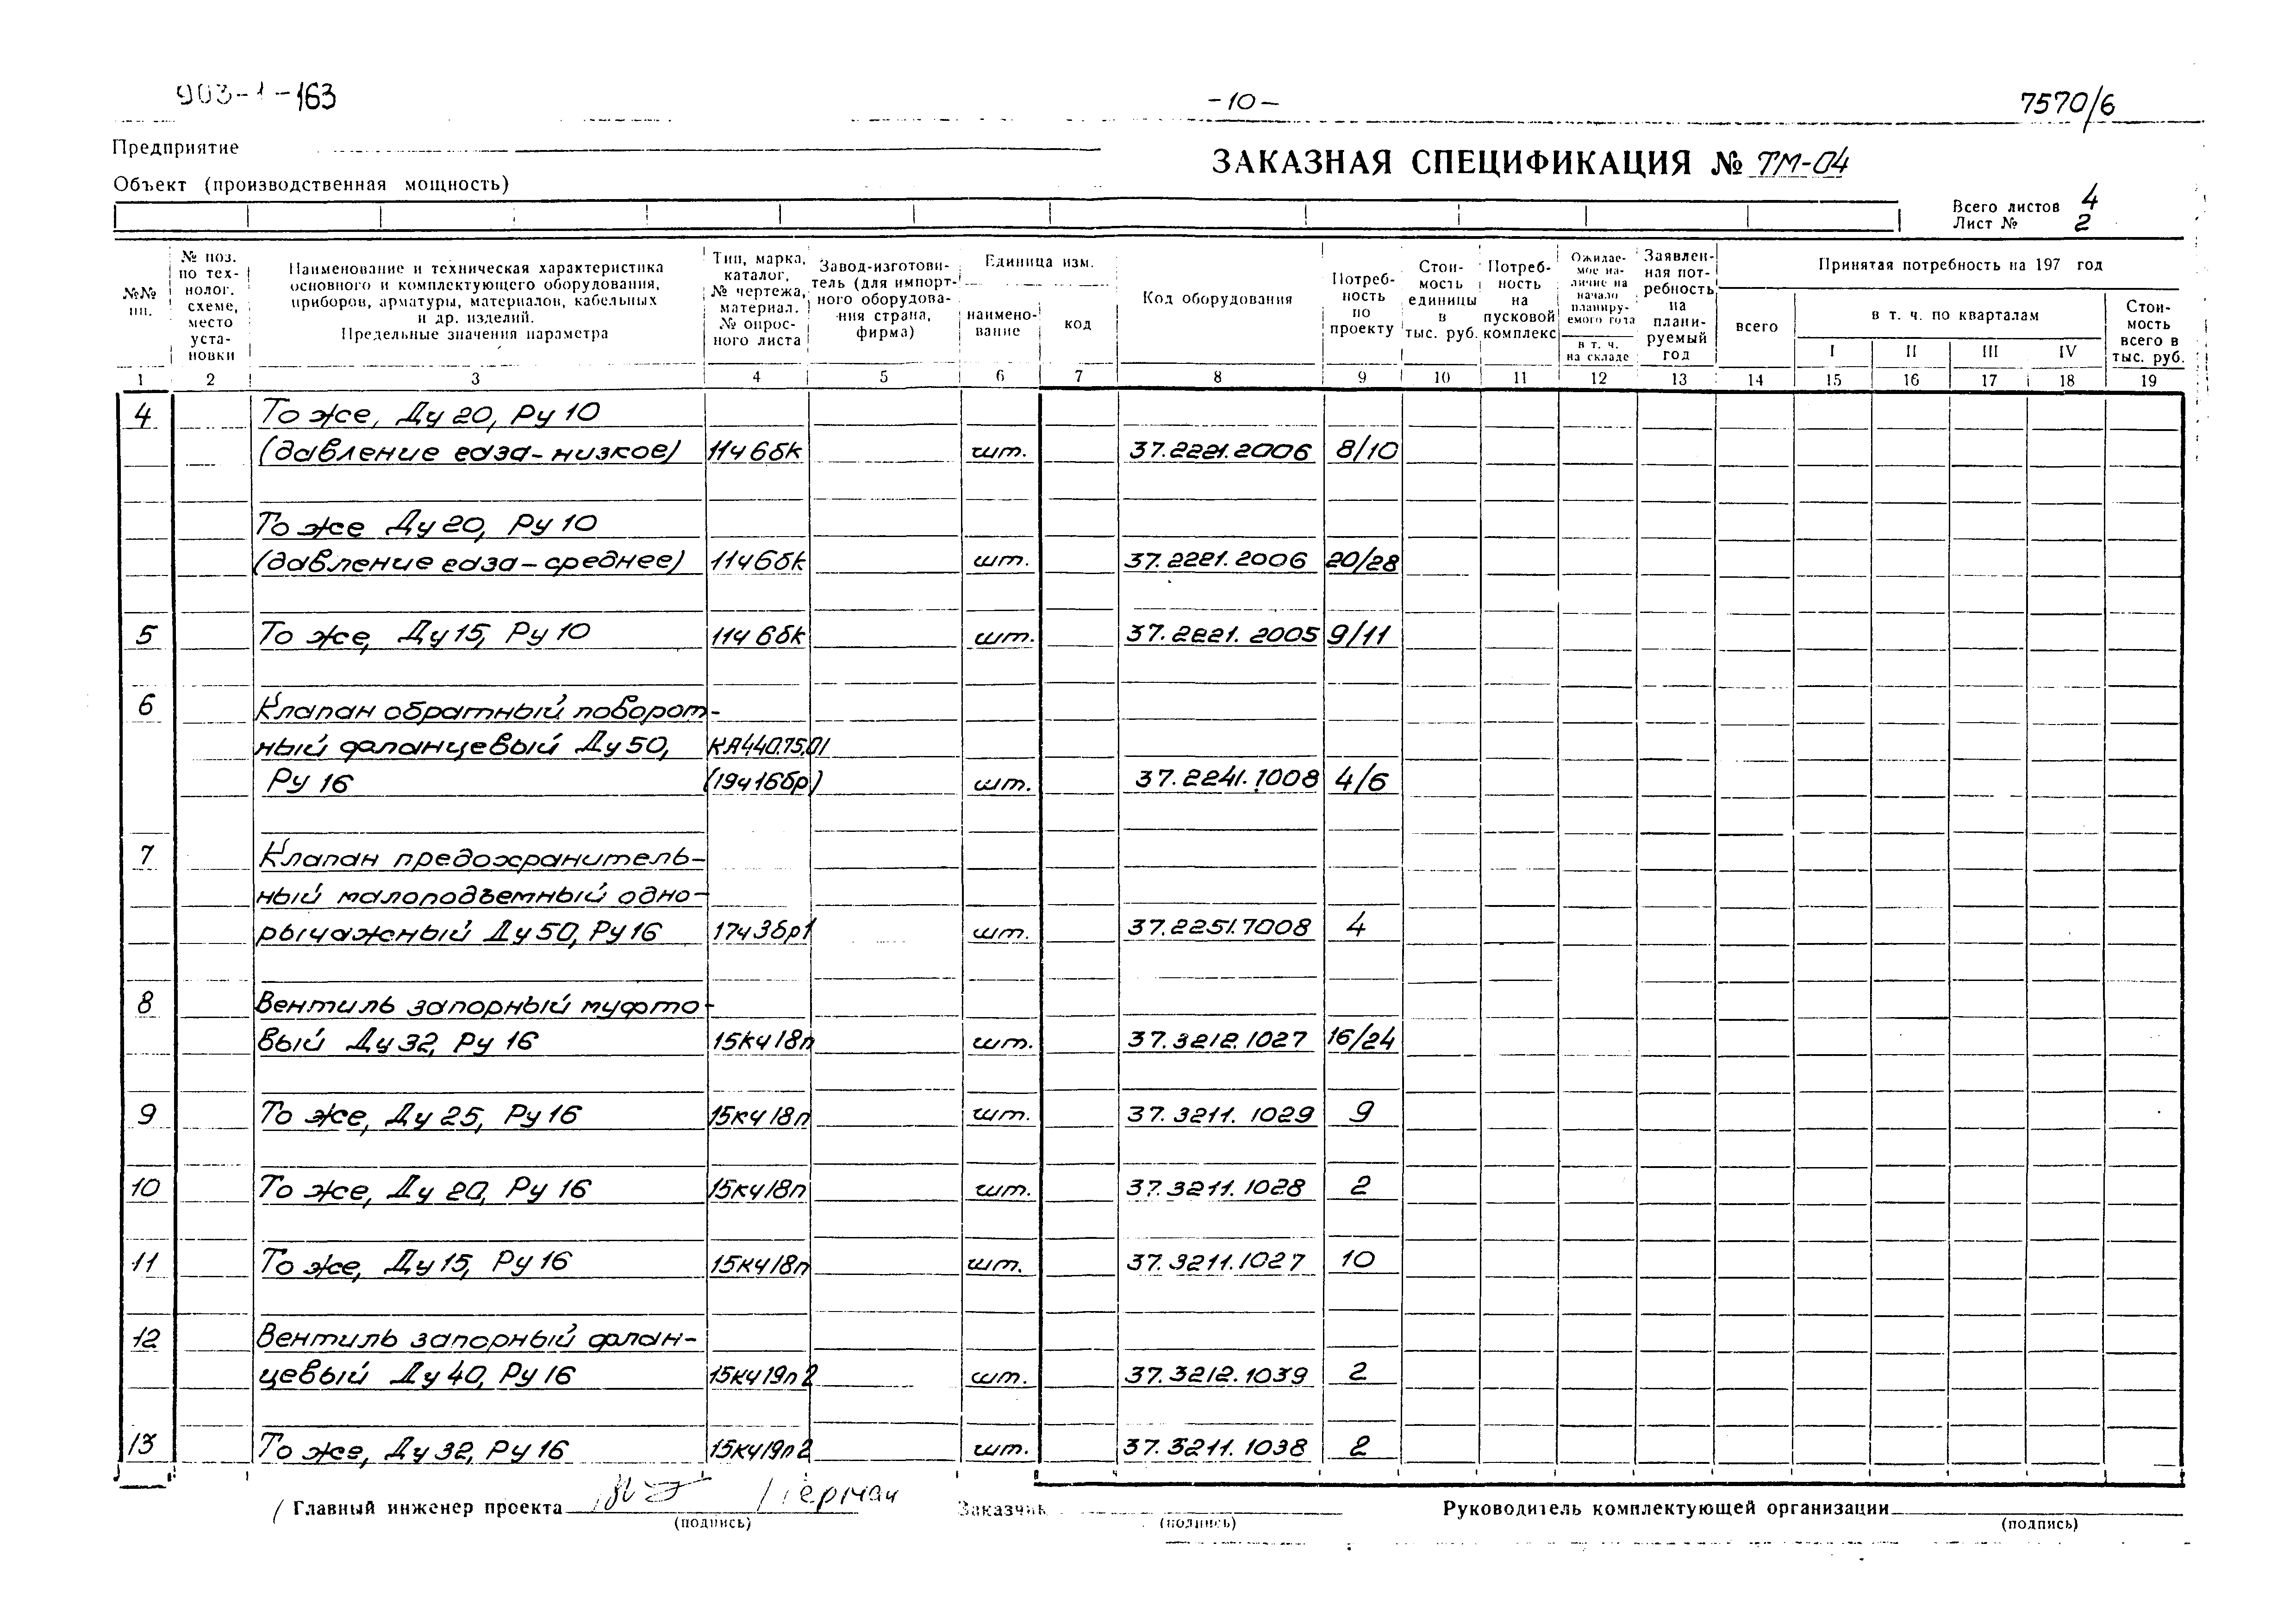 903-1-163
-10-
7570/6
Предприятие
ЗАКАЗНАЯ СПЕЦИФИКАЦИЯ № ТМ-04
Объект (производственная мощность)
Всего листов 4
Лист № 2
№№ пп.
№ поз. по технолог. схеме, место установки
Наименование и техническая характеристика
основного и комплектующего оборудования,
приборов, арматуры, материалов, кабельных
и др. изделий.
Предельные значения параметра
Тип, марка, каталог, № чертежа, материал. № опросного листа
Завод-изготовитель (для импортного оборудования страна, фирма)
Единица изм.
наименование
код
Код оборудования
Потребность по проекту
Стоимость единицы в тыс. руб.
Потребность на пусковой комплекс
Ожидаемое наличие на начало планируемого года
в т. ч. на складе
Заявленная потребность на планируемый год
Принятая потребность на 197 год
всего
в т. ч. по кварталам
I II III IV
Стоимость всего в тыс. руб.
1 2 3 4 5 6 7 8 9 10 11 12 13 14 15 16 17 18 19
4 То же, Ду 20, Ру 10
(давление газа-низкое) 11ч6бк шт. 37.2221.2006 8/10
То же Ду 20, Ру 10
(давление газа-среднее) 11ч6бк шт. 37.2221.2006 20/28
5 То же, Ду 15, Ру 10 11ч6бк шт. 37.2221.2005 9/11
6 Клапан обратный поворот-
ный фланцевый Ду 50, КА44075.01
Ру 16 (19ч16бр) шт. 37.2241.1008 4/6
7 Клапан предохранитель-
ный малоподъемный одно-
рычажный Ду 50, Ру 16 17ч3бр1 шт. 37.2251.7008 4
8 Вентиль запорный муфто-
вый Ду 32, Ру 16 15кч18п шт. 37.3212.1027 16/24
9 То же, Ду 25, Ру 16 15кч18п шт. 37.3211.1029 9
10 То же, Ду 20, Ру 16 15кч18п шт. 37.3211.1028 2
11 То же, Ду 15, Ру 16 15кч18п шт. 37.3211.1027 10
12 Вентиль запорный флан-
цевый Ду 40, Ру 16 15кч19п2 шт. 37.3212.1039 2
13 То же, Ду 32, Ру 16 15кч19п2 шт. 37.3211.1038 2
Главный инженер проекта
(подпись)
Заказчик
(подпись)
Руководитель комплектующей организации
(подпись)